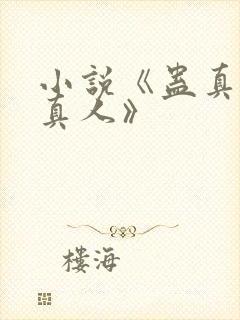 小説《蛊真
真人》
樓海